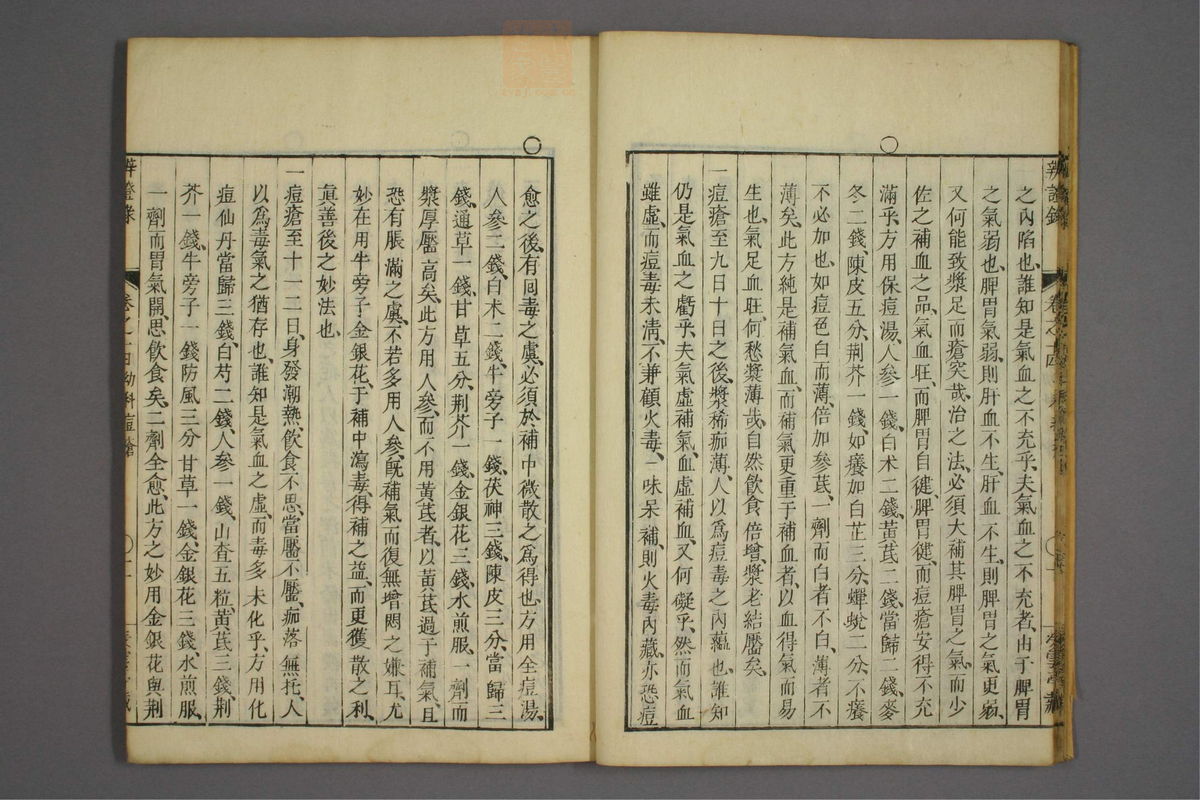 之內陷也、誰知是氣血之不充乎、夫氣血之不充者、由于脾胃
之氣弱也、脾胃氣弱、則肝血不生、肝血不生、則脾胃之氣更弱、
又何能致漿足而瘡突哉、治之法、必須大補其脾胃之氣、而少
佐之補血之品、氣血旺、而脾胃自徤、脾胃徤、而痘瘡安得不充
滿乎、方用保痘湯、人參一錢、白术二錢、黃芪二錢、當歸二錢、麥
冬二錢、陳皮五分、荆芥一錢、如癢加白芷三分、蟬蛻二分、不癢
不必加也、如痘色白而薄、倍加參芪、一劑而白者不白、薄者不
薄矣、此方純是補氣血、而補氣更重于補血者、以血得氣而易
生也、氣足血旺、何愁漿薄哉、自然飲食倍增、漿老結靨矣、
一痘瘡至九日十日之後、漿稀痂薄、人以爲痘毒之內蘊也、誰知
仍是氣血之虧乎、夫氣虛補氣、血虛補血、又何礙乎、然而氣血
雖虛、而痘毒未淸、不兼顧火毒、一味呆補、則火毒內藏、亦恐痘
愈之後、有囘毒之虞、必須於補中微散之爲得也、方用全痘湯、
人參二錢、白术二錢、牛旁子一錢、茯神三錢、陳皮三分、當歸三
錢、通草一錢、甘草五分、荆芥一錢、金銀花三錢、水煎服、一劑而
漿厚靨高矣、此方用人參、而不用黃芪者、以黃芪過于補氣、且
恐有脹滿之虞、不若多用人參、旣補氣而復無增悶之嫌耳、尤
妙在用牛旁子金銀花、于補中瀉毒、得補之益、而更獲散之利、
眞善後之妙法也、
一痘瘡至十一二日、身發潮熱、飲食不思、當靨不靨、痂落無托、人
以爲毒氣之猶存也、誰知是氣血之虛、而毒多未化乎、方用化
痘仙丹、當歸三錢、白芍二錢、人參一錢、山查五粒、黃芪三錢、荆
芥一錢、牛旁子一錢、防風三分、甘草一錢、金銀花三錢、水煎服、
一劑而胃氣開、思飲食矣、二劑全愈、此方之妙、用金銀花與荆
辛證錄 卷之十四幼科痘瘡